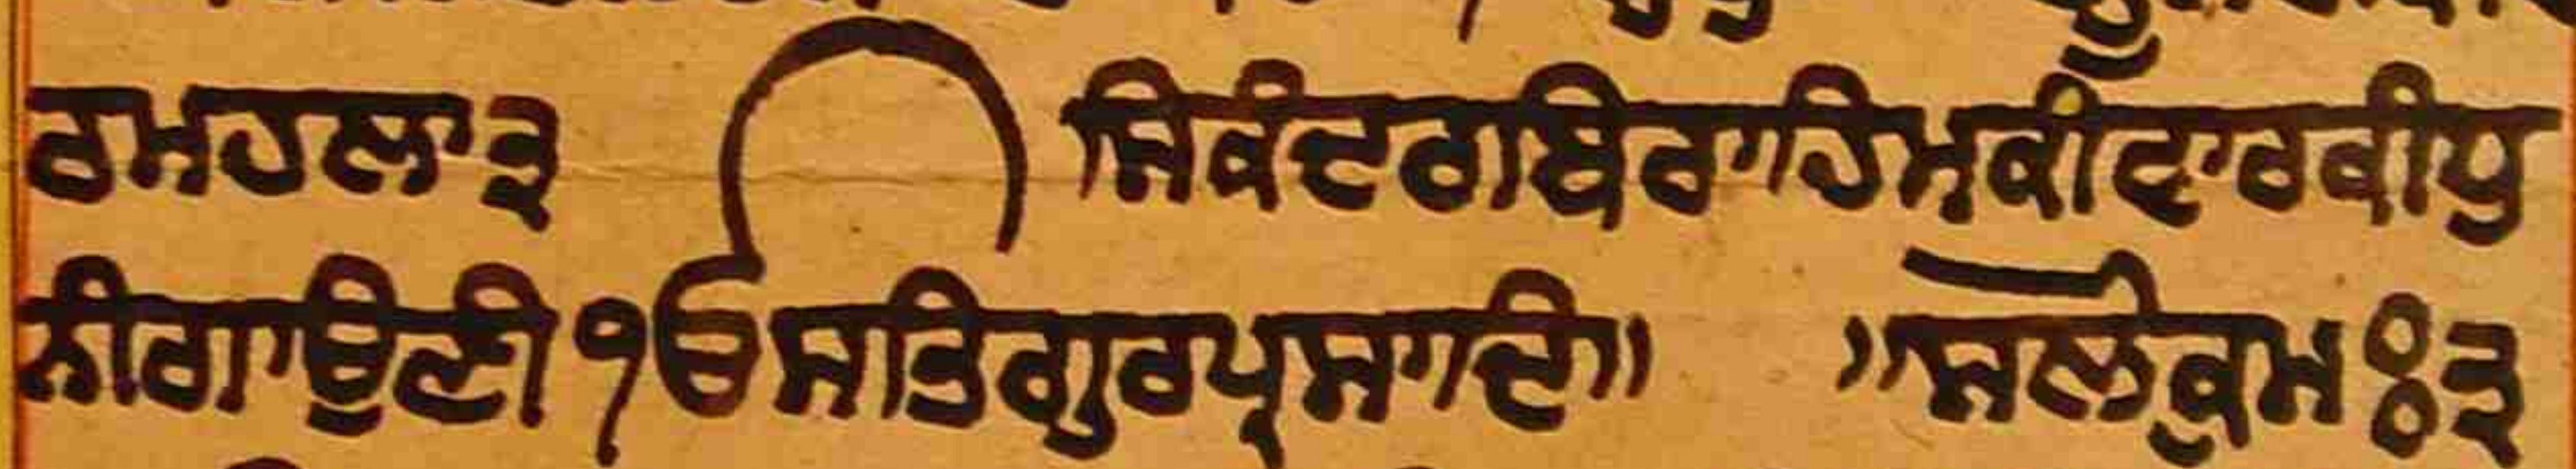 ਰਮਹਲਾ੩ ਸਿਕੰਦਰਬਿਰਾਹਿਮਕੀਵਾਰਕੀਧੁ
ਨੀਗਾਉਣੀ ੴਸਤਿਗੁਰਪ੍ਰਸਾਦਿ॥ ॥ਸਲੋਕੁਮਃ੩